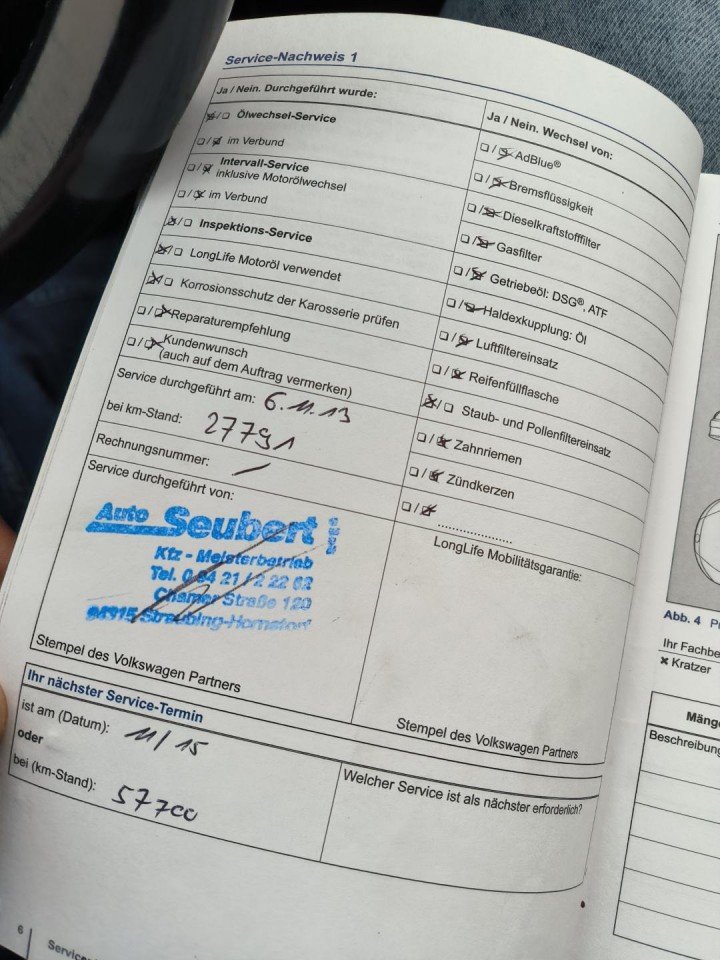 Service-Nachweis 1
Ja / Nein. Durchgeführt wurde:
Ölwechsel-Service
im Verbund
Intervall-Service
inklusive Motorölwechsel
im Verbund
Inspektions-Service
LongLife Motoröl verwendet
Korrosionsschutz der Karosserie prüfen
Reparaturempfehlung
Kundenwunsch
(auch auf dem Auftrag vermerken)
Service durchgeführt am: 6.11.13
bei km-Stand: 27791
Rechnungsnummer: /
Service durchgeführt von:
Auto Seubert
Kfz - Meisterbetrieb
Tel. 0 94 21 / 2 22 62
Chamer Straße 120
94315 Straubing-Hornstorf
Stempel des Volkswagen Partners
Ja / Nein. Wechsel von:
AdBlue®
Bremsflüssigkeit
Dieselkraftstofffilter
Gasfilter
Getriebeöl: DSG®, ATF
Haldexkupplung: Öl
Luftfiltereinsatz
Reifenfüllflasche
Staub- und Pollenfiltereinsatz
Zahnriemen
Zündkerzen
....................
LongLife Mobilitätsgarantie:
Stempel des Volkswagen Partners
Ihr nächster Service-Termin
ist am (Datum): 11/15
oder
bei (km-Stand): 57700
Welcher Service ist als nächster erforderlich?
6
Abb. 4
Ihr Fachbe
× Kratzer
Mänge
Beschreibung